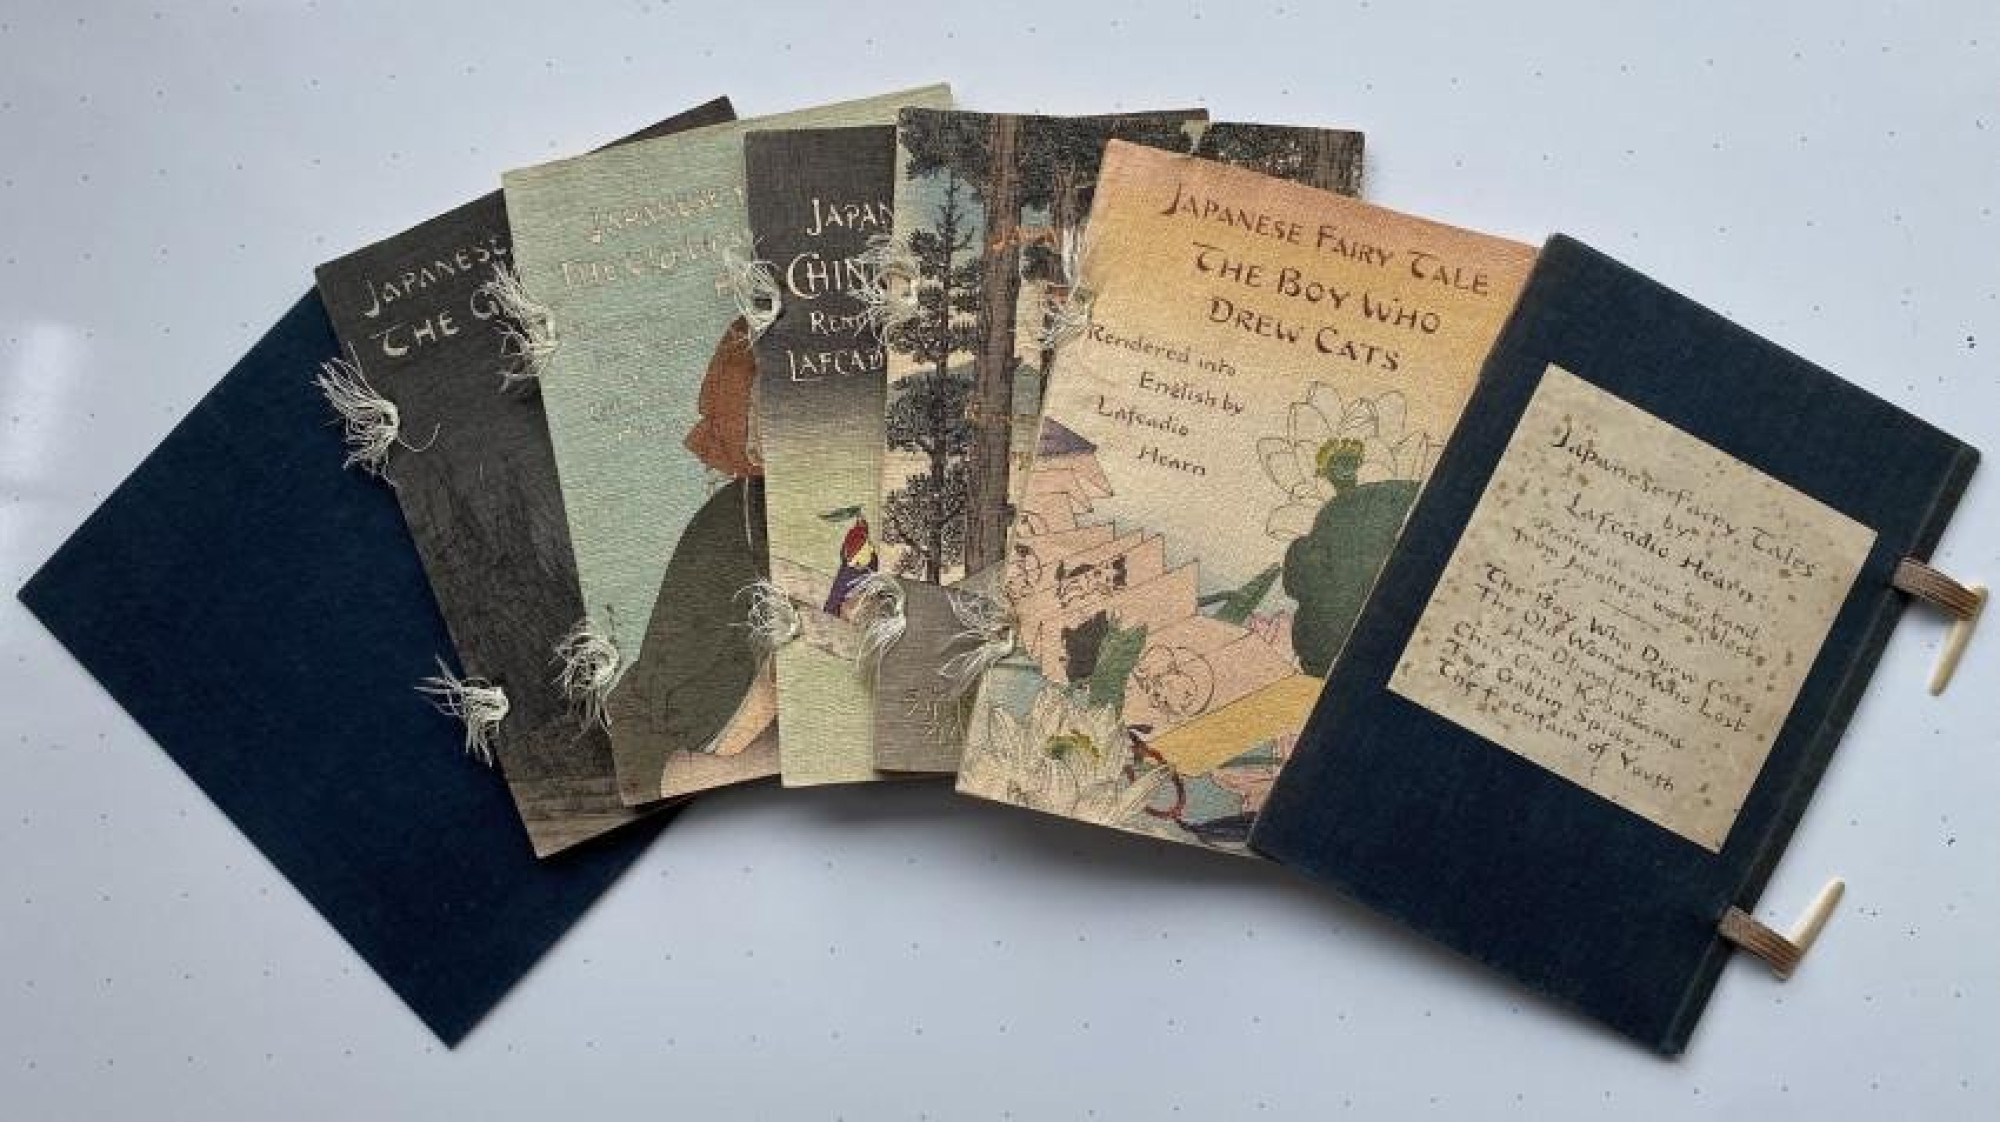 JAPANESE
THE G
JAPANESE
THE OLD
JAPAN
CHIN
REND
LAFCAD
JAPANESE FAIRY TALE
THE BOY WHO
DREW CATS
Rendered into
English by
Lafcadio
Hearn
Japanese Fairy Tales
by
Lafcadio Hearn
Printed in color by hand
from Japanese wood blocks
The Boy Who Drew Cats
The Old Woman Who Lost
Her Dumpling
Chin Chin Kobakama
The Goblin Spider
The Fountain of Youth